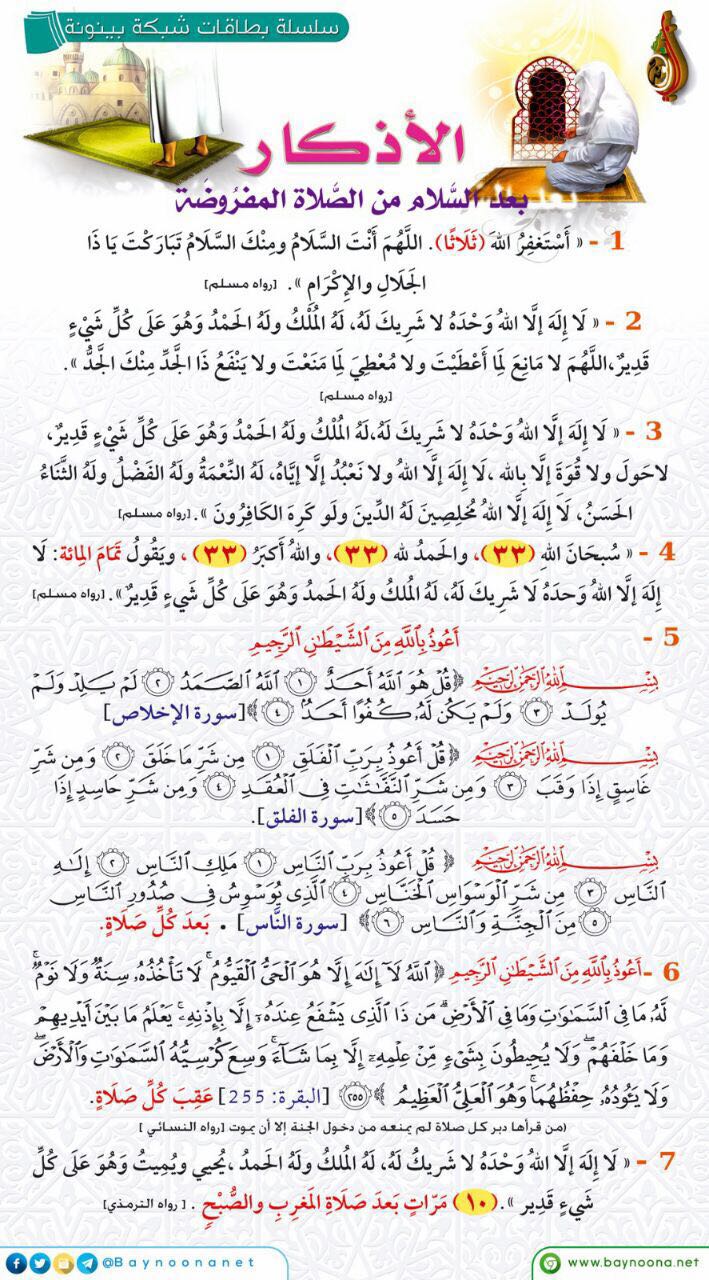 سلسلة بطاقات شبكة بينونة
الأذكار
بعد السَّلام من الصَّلاة المفرُوضَة
1 - « أَسْتَغفِرُ اللهَ (ثَلَاثًا). اللَّهُمَ أَنْتَ السَّلَامُ ومِنْكَ السَّلَامُ تَبَارَكْتَ يَا ذَا
الجَلَالِ والإِكْرَامِ ». [رواه مسلم]
2 - « لَا إِلَهَ إلَّا اللهُ وَحْدَهُ لا شَرِيكَ لَهُ، لَهُ المُلْكُ ولَهُ الحَمْدُ وَهُوَ عَلَى كُلِّ شَيْءٍ
قَدِيرٌ،اللَّهُمَ لا مَانِعَ لِمَا أَعْطَيْتَ ولا مُعْطِيَ لِمَا مَنَعْتَ ولا يَنْفَعُ ذَا الجَدِّ مِنْكَ الجَدُّ ».
[رواه مسلم]
3 - « لَا إِلَهَ إلَّا اللهُ وَحْدَهُ لا شَرِيكَ لَهُ،لَهُ المُلْكُ ولَهُ الحَمْدُ وَهُوَ عَلَى كُلِّ شَيْءٍ قَدِيرٌ،
لاحَولَ ولا قُوَةَ إلَّا بِالله ،لَا إِلَهَ إلَّا اللهُ ولا نَعْبُدُ إلَّا إيَّاهُ، لَهُ النِّعْمَةُ ولَهُ الفَضْلُ ولَهُ الثَّنَاءُ
الحَسَنُ، لَا إِلَهَ إلَّا اللهُ مُخلِصِينَ لَهُ الدِّينَ ولَو كَرِهَ الكَافِرُونَ ».[رواه مسلم]
4 - « سُبحَانَ اللهِ (٣٣)، والحَمدُ لله (٣٣)، واللهُ أَكبَرُ (٣٣) ، ويَقُولُ تَمَامَ المِائة: لَا
إِلَهَ إلَّا اللهُ وَحْدَهُ لَا شَرِيكَ لَهُ، لَهُ المُلكُ ولَهُ الحَمدُ وَهُوَ عَلَى كُلِّ شَيءٍ قَدِيرٌ».[رواه مسلم]
5 - أَعُوذُ بِٱللَّهِ مِنَ ٱلشَّيْطَٰنِ ٱلرَّجِيمِ
بِسْمِ ٱللَّهِ ٱلرَّحْمَٰنِ ٱلرَّحِيمِ ﴿قُلْ هُوَ ٱللَّهُ أَحَدٌ ١ ٱللَّهُ ٱلصَّمَدُ ٢ لَمْ يَلِدْ وَلَمْ
يُولَدْ ٣ وَلَمْ يَكُن لَّهُۥ كُفُوًا أَحَدٌۢ ٤﴾[سورة الإخلاص]
بِسْمِ ٱللَّهِ ٱلرَّحْمَٰنِ ٱلرَّحِيمِ ﴿قُلْ أَعُوذُ بِرَبِّ ٱلْفَلَقِ ١ مِن شَرِّ مَا خَلَقَ ٢ وَمِن شَرِّ
غَاسِقٍ إِذَا وَقَبَ ٣ وَمِن شَرِّ ٱلنَّفَّٰثَٰتِ فِى ٱلْعُقَدِ ٤ وَمِن شَرِّ حَاسِدٍ إِذَا
حَسَدَ ٥﴾[سورة الفلق].
بِسْمِ ٱللَّهِ ٱلرَّحْمَٰنِ ٱلرَّحِيمِ ﴿ قُلْ أَعُوذُ بِرَبِّ ٱلنَّاسِ ١ مَلِكِ ٱلنَّاسِ ٢ إِلَٰهِ
ٱلنَّاسِ ٣ مِن شَرِّ ٱلْوَسْوَاسِ ٱلْخَنَّاسِ ٤ ٱلَّذِى يُوَسْوِسُ فِى صُدُورِ ٱلنَّاسِ
٥ مِنَ ٱلْجِنَّةِ وَٱلنَّاسِ ٦﴾ [سورة النَّاس] . بَعدَ كُلِّ صَلَاةٍ.
6 - أَعُوذُ بِٱللَّهِ مِنَ ٱلشَّيْطَٰنِ ٱلرَّجِيمِ ﴿ ٱللَّهُ لَآ إِلَٰهَ إِلَّا هُوَ ٱلْحَىُّ ٱلْقَيُّومُ ۚ لَا تَأْخُذُهُۥ سِنَةٌ وَلَا نَوْمٌ ۚ
لَّهُۥ مَا فِى ٱلسَّمَٰوَٰتِ وَمَا فِى ٱلْأَرْضِ ۗ مَن ذَا ٱلَّذِى يَشْفَعُ عِندَهُۥٓ إِلَّا بِإِذْنِهِۦ ۚ يَعْلَمُ مَا بَيْنَ أَيْدِيهِمْ
وَمَا خَلْفَهُمْ ۖ وَلَا يُحِيطُونَ بِشَىْءٍ مِّنْ عِلْمِهِۦٓ إِلَّا بِمَا شَآءَ ۚ وَسِعَ كُرْسِيُّهُ ٱلسَّمَٰوَٰتِ وَٱلْأَرْضَ ۖ
وَلَا يَـُٔودُهُۥ حِفْظُهُمَا ۚ وَهُوَ ٱلْعَلِىُّ ٱلْعَظِيمُ ﴾٢٥٥ [البقرة: 255] عَقِبَ كُلِّ صَلَاةٍ.
(من قرأها دبر كل صلاة لم يمنعه من دخول الجنة إلا أن يموت [رواه النسائي])
7 - « لَا إِلَهَ إلَّا اللهُ وَحْدَهُ لا شَرِيكُ لَهُ، لَهُ المُلكُ ولَهُ الحَمدُ ،يُحيي ويُمِيتُ وَهُوَ عَلَى كُلِّ
شَيءٍ قَدِير ».(١٠) مَرّاتٍ بَعدَ صَلَاةِ المَغرِبِ والصُّبْحِ . [رواه الترمذي]
@Baynoonanet
www.baynoona.net